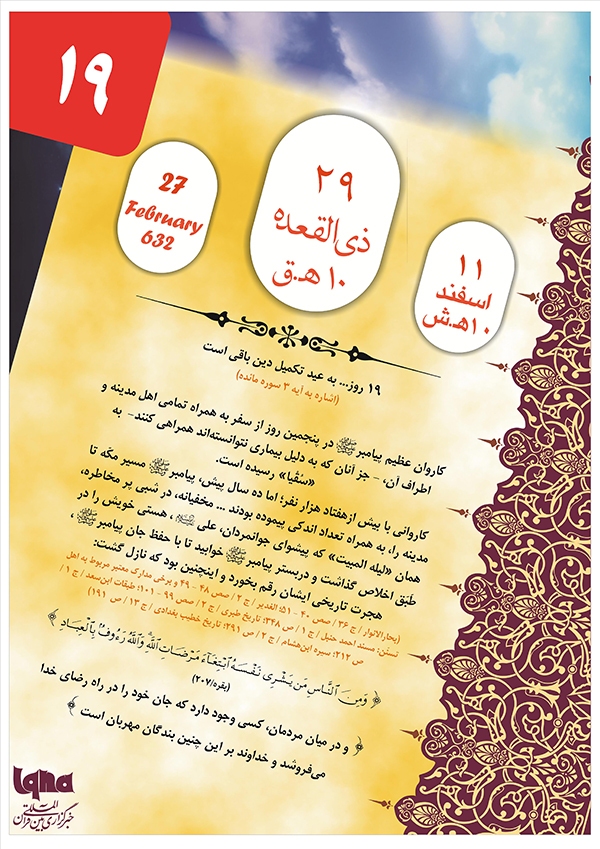 ۱۹
27
February
632
۲۹
ذی‌القعده
۱۰ ه‍.ق
۱۱
اسفند
۱۰ ه‍.ش
۱۹ روز... به عید تکمیل دین باقی است
(اشاره به آیه ۳ سوره مائده)
کاروان عظیم پیامبر ﷺ در پنجمین روز از سفر به همراه تمامی اهل مدینه و
اطراف آن، – جز آنان که به دلیل بیماری نتوانسته‌اند همراهی کنند– به
«سُقْیا» رسیده است.
کاروانی با بیش از هفتاد هزار نفر؛ اما ده سال پیش، پیامبر ﷺ مسیر مکّه تا
مدینه را، به همراه تعداد اندکی پیموده بودند ... مخفیانه، در شبی پر مخاطره،
همان «لیله المبیت» که پیشوای جوانمردان، علی ، هستی خویش را در
طَبَق اخلاص گذاشت و دربستر پیامبر ﷺ خوابید تا با حفظ جان پیامبر ﷺ ،
هجرت تاریخی ایشان رقم بخورد و اینچنین بود که نازل گشت:
(بحارالانوار / ج ۳۶ / صص ۴۰ - ۵۱؛ الغدیر / ج ۲ / صص ۲۸ - ۴۹ و برخی مدارک معتبر مربوط به اهل
تسنّن: مسند احمد حنبل / ج ۱ / ص ۳۴۸؛ تاریخ طبری / ج ۲ / صص ۹۹ - ۱۰۱؛ طبقات ابن‌سعد / ج ۱ /
ص ۲۱۲؛ سیره ابن‌هشام / ج ۲ / ص ۲۹۱؛ تاریخ خطیب بغدادی / ج ۱۳ / ص ۱۹۱)
﴿ وَمِنَ ٱلنَّاسِ مَن يَشْرِى نَفْسَهُ ٱبْتِغَآءَ مَرْضَاتِ ٱللَّهِ وَٱللَّهُ رَءُوفٌۢ بِٱلْعِبَادِ ﴾
(بقره/۲۰۷)
﴿ و در میان مردمان، کسی وجود دارد که جان خود را در راه رضای خدا
می‌فروشد و خداوند بر این چنین بندگان مهربان است ﴾
iqna
خبرگزاری بین‌المللی قرآن